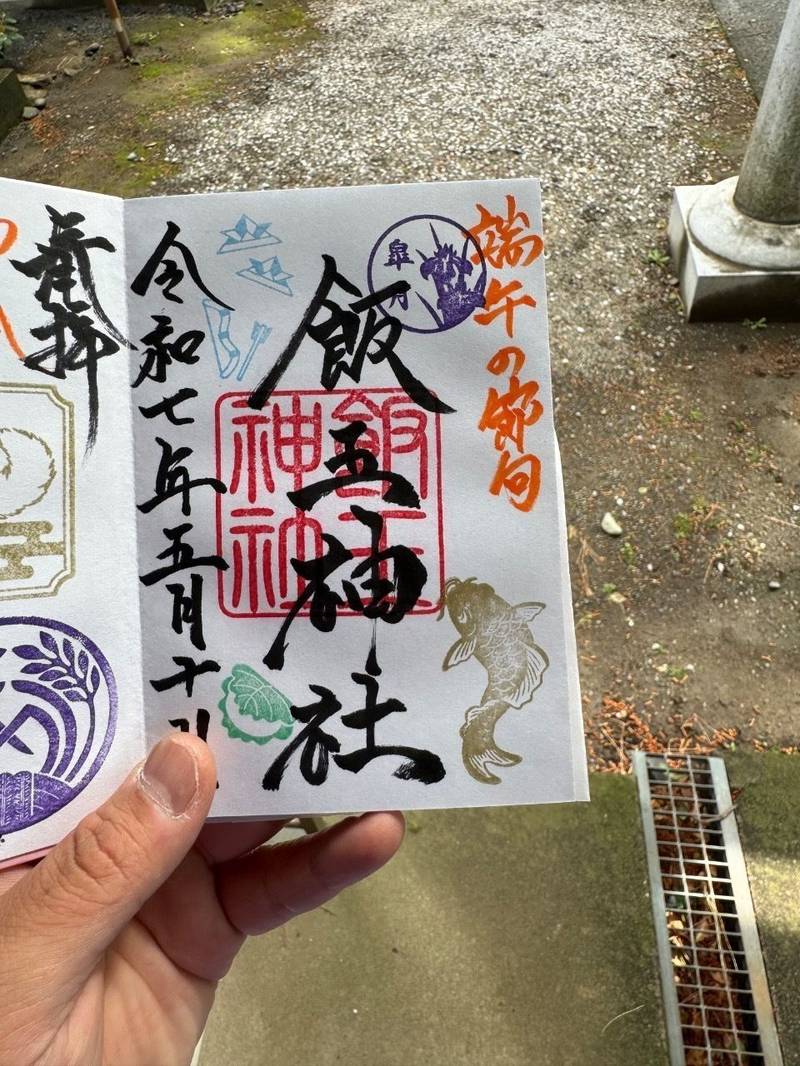 端午の節句
皐月
飯玉神社
飯玉
神社
令和七年五月十
奉拝